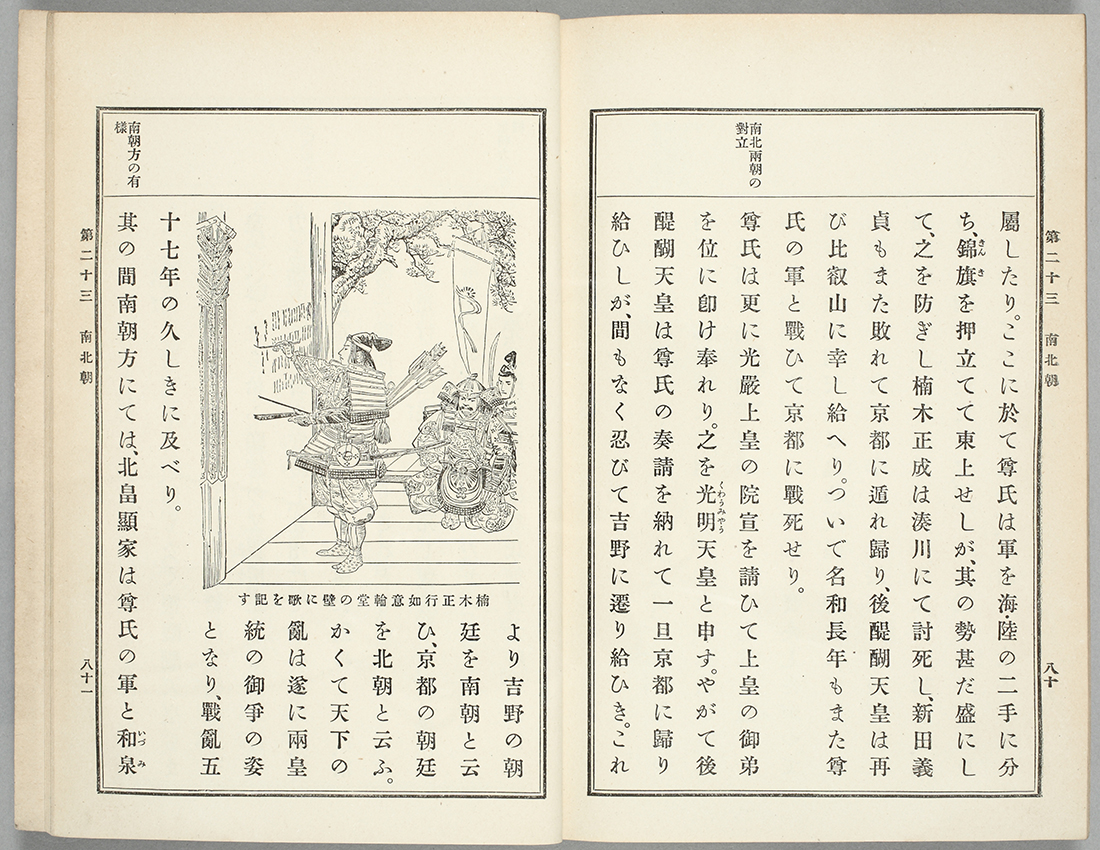 第二十三 南北朝
八十
南北兩朝の
對立
屬したり。ここに於て尊氏は軍を海・陸の二手に分
ち、錦旗を押立てて東上せしが、其の勢甚だ盛にし
きんき
て、之を防ぎし楠木正成は湊川にて討死し、新田義
貞もまた敗れて京都に遁れ歸り、後醍醐天皇は再
び比叡山に幸し給へり。ついで名和長年もまた尊
氏の軍と戰ひて京都に戰死せり。
尊氏は更に光嚴上皇の院宣を請ひて上皇の御弟
を位に卽け奉れり。之を光明天皇と申す。やがて後
くわうみやう
醍醐天皇は尊氏の奏請を納れて一旦京都に歸り
給ひしが、間もなく忍びて吉野に遷り給ひき。これ
より吉野の朝
廷を南朝と云
ひ、京都の朝廷
を北朝と云ふ。
かくて天下の
亂は遂に兩皇
統の御爭の姿
となり、戰亂五
楠木正行如意輪堂の壁に歌を記す
十七年の久しきに及べり。
南朝方の有
樣
其の間南朝方にては、北畠顯家は尊氏の軍と和泉
いづみ
第二十三 南北朝
八十一